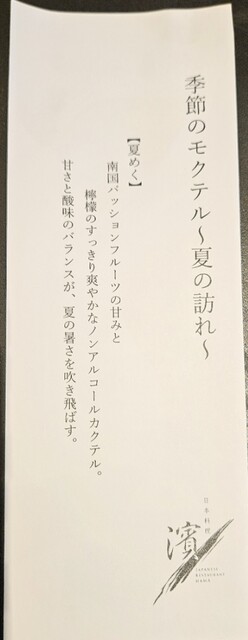 季節のモクテル～夏の訪れ～
【夏めく】
南国パッションフルーツの甘みと
檸檬のすっきり爽やかなノンアルコールカクテル。
甘さと酸味のバランスが、夏の暑さを吹き飛ばす。
日本料理
濱
JAPANESE
RESTAURANT
HAMA